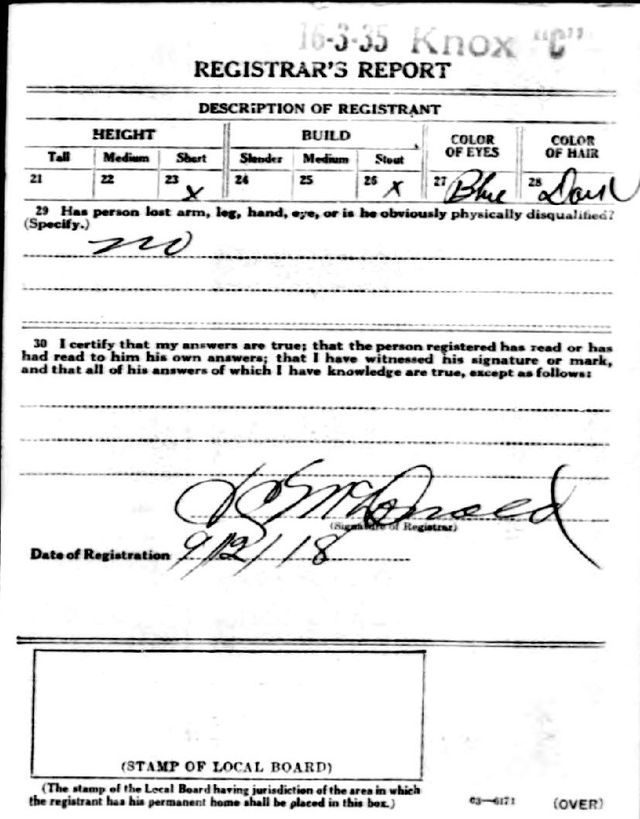 16-3-35 Knox "C"
REGISTRAR'S REPORT
DESCRIPTION OF REGISTRANT
HEIGHT BUILD COLOR OF EYES COLOR OF HAIR
Tall Medium Short Slender Medium Stout
21 22 23 x 24 25 26 x 27 Blue 28 Dark
29 Has person lost arm, leg, hand, eye, or is he obviously physically disqualified?
(Specify.) no
30 I certify that my answers are true; that the person registered has read or has
had read to him his own answers; that I have witnessed his signature or mark,
and that all of his answers of which I have knowledge are true, except as follows:
McDonald
(Signature of Registrar)
Date of Registration 9/12/18
(STAMP OF LOCAL BOARD)
(The stamp of the Local Board having jurisdiction of the area in which
the registrant has his permanent home shall be placed in this box.)
03—6171 (OVER)